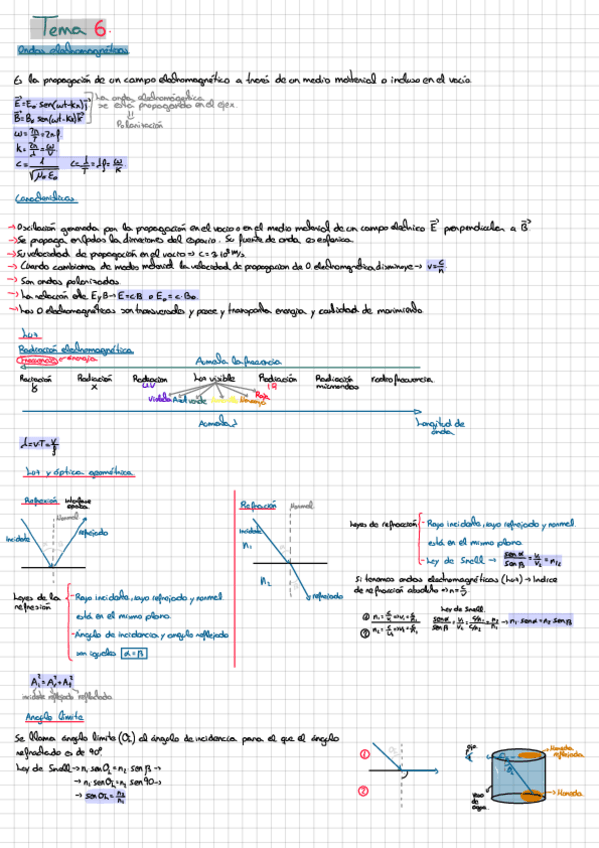 Tema 6.
Ondas electromagnéticas
Es la propagación de un campo electromagnético a través de un medio material o incluso en el vacío.
E = E₀ sen(ωt-kx)j
La onda electromagnética
B = B₀ sen(ωt-kx)k
se está propagando en el eje x.
Polarización
ω = 2π/T = 2πf
k = 2π/λ = ω/v
c = 1/√μ₀ε₀   c = λ/T = λf = ω/k
Características
→ Oscilación generada por la propagación en el vacío o en el medio material de un campo eléctrico E perpendicular a B
→ Se propaga en todas la direcciones del espacio. Su fuente de onda es esférica.
→ Su velocidad de propagación en el vacío → c = 3·10⁸ m/s
→ Cuando cambiamos de medio material la velocidad de propagación de O electromagnética disminuye → v = c/n
→ Son ondas polarizadas.
→ La relación de E y B → E = c·B o E₀ = c·B₀
→ Las O electromagnéticas son transversales y posee y transporta energía y cantidad de movimiento.
Luz
Radiación electromagnética
Frecuencia → energía
Aumenta la frecuencia
Radiación γ   Radiación X   Radiación UV   Luz visible   Radiación IR   Radiación microondas   radiofrecuencia
Violeta Azul verde Amarillo Naranja Roja
Aumenta λ
Longitud de onda
λ = v·T = v/f
Luz y óptica geométrica
Reflexión
Normal
incidente
reflejado
Leyes de la reflexión
- Rayo incidente, rayo reflejado y normal
está en el mismo plano.
- Ángulo de incidencia y ángulo reflejado
son iguales α = β
Refracción
Normal
incidente
n₁
n₂
reflejado
Leyes de refracción
- Rayo incidente, rayo reflejado y normal
está en el mismo plano.
- Ley de Snell →
Si tenemos ondas electromagnéticas (Luz) → Índice
de refracción absoluto → n = c/v
Ley de Snell.
→ n₁ senα = n₂ senβ
incidente reflejado
Angulo límite
Se llama ángulo límite (O_L) al ángulo de incidencia para el que el ángulo
refractado es de 90°.
Ley de Snell → n₁ senO_L = n₂ senβ →
→ n₁ senO_L = n₂ sen90 →
→ senO_L = n₂/n₁
①
②
ojo
Moneda reflejada
Vaso de agua
Moneda